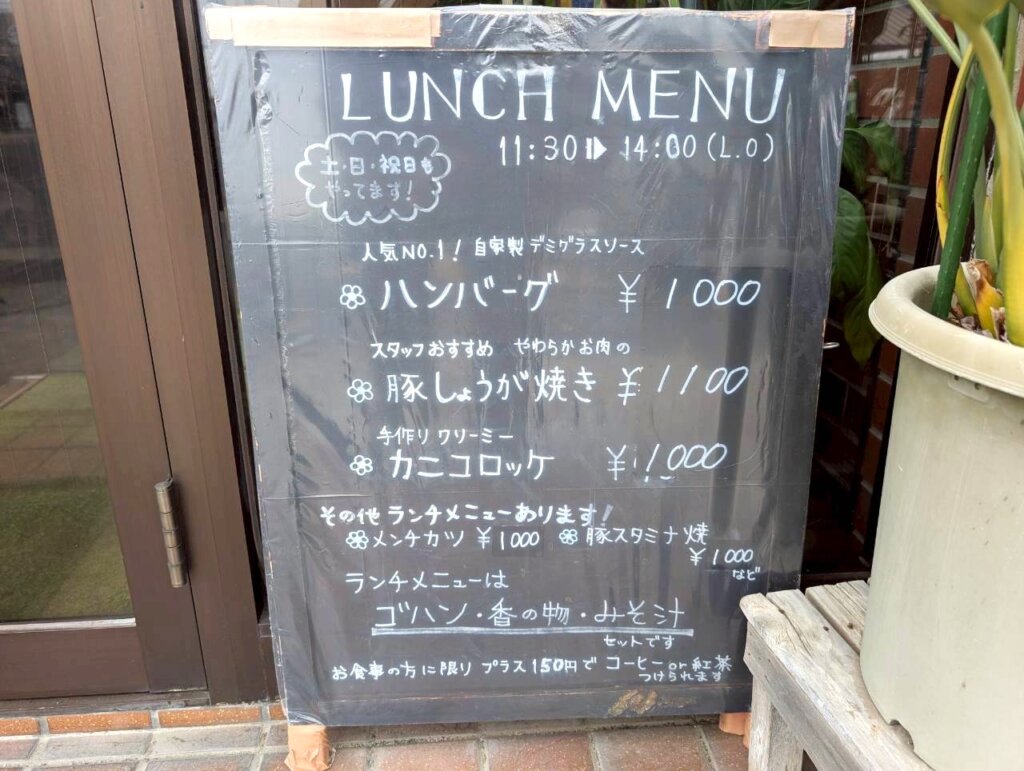 LUNCH MENU
11:30 ▷ 14:00 (L.O)
土・日・祝日も
やってます!
人気NO.1! 自家製 デミグラスソース
ハンバーグ ¥1000
スタッフおすすめ やわらかお肉の
豚しょうが焼き ¥1100
手作り クリーミー
カニコロッケ ¥1000
その他 ランチメニューあります!
メンチカツ ¥1000 豚スタミナ焼
¥1000
など
ランチメニューは
ゴハン・香の物・みそ汁
セットです
お食事の方に限り プラス150円で コーヒー or 紅茶
つけられます